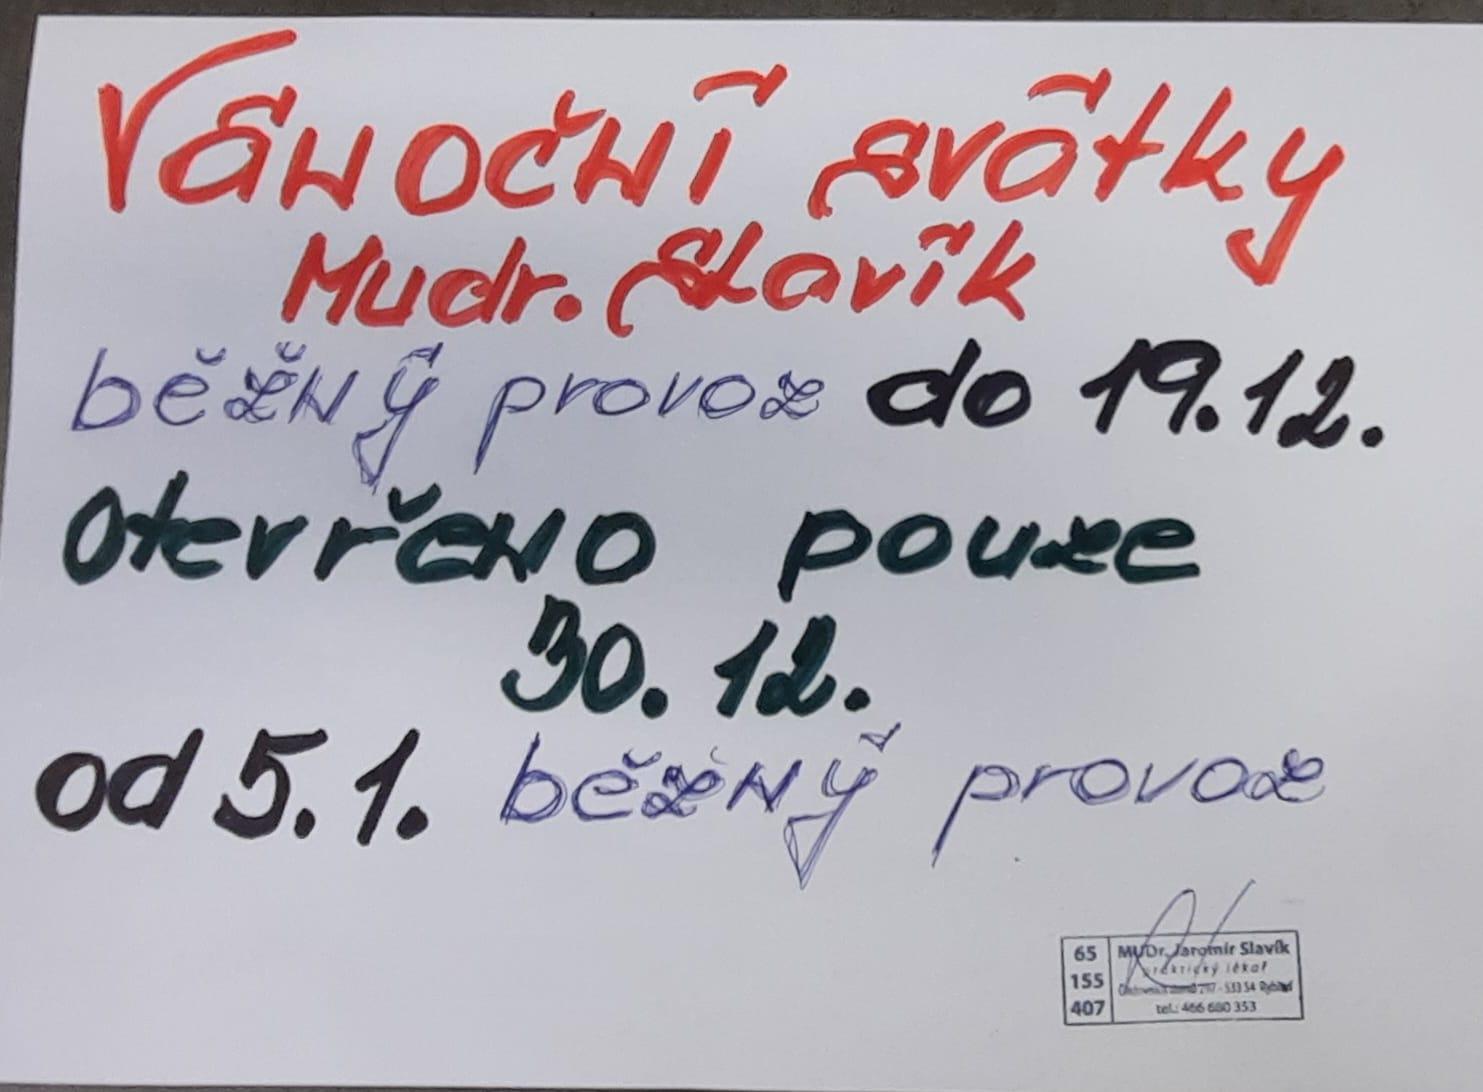 Vánoční svátky
Mudr. Slavík
běžný provoz do 19.12.
Otevřeno pouze
30. 12.
od 5. 1. běžný provoz
65
155
407
MUDr. Jaromír Slavík
praktický lékař
297 - 533 54 Rybitví
tel.: 466 680 353